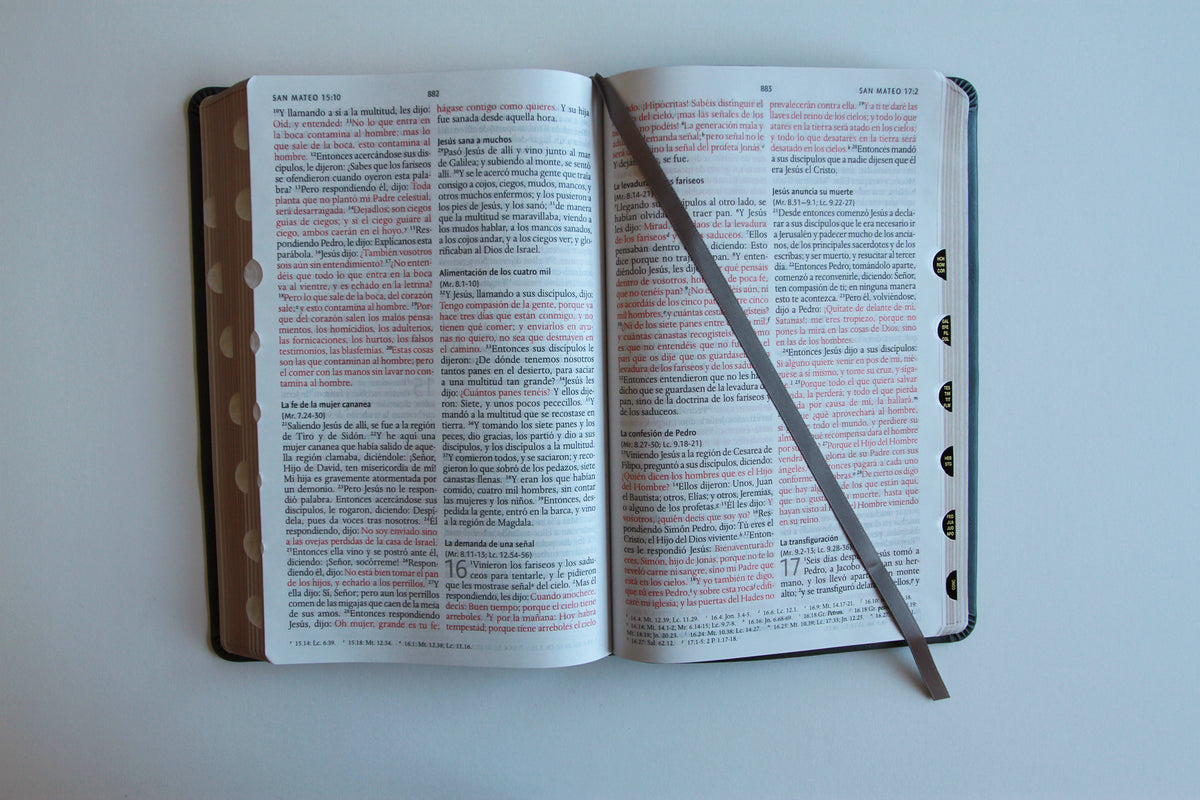 SAN MATEO 15:10
882
¹⁰Y llamando a sí a la multitud, les dijo:
Oíd, y entended: ¹¹No lo que entra en
la boca contamina al hombre; mas lo
que sale de la boca, esto contamina al
hombre. ¹²Entonces acercándose sus dis-
cípulos, le dijeron: ¿Sabes que los fariseos
se ofendieron cuando oyeron esta pala-
bra? ¹³Pero respondiendo él, dijo: Toda
planta que no plantó mi Padre celestial,
será desarraigada. ¹⁴Dejadlos; son ciegos
guías de ciegos; y si el ciego guiare al
ciego, ambos caerán en el hoyo. ¹⁵Res-
pondiendo Pedro, le dijo: Explícanos esta
parábola. ¹⁶Jesús dijo: ¿También vosotros
sois aún sin entendimiento? ¹⁷¿No enten-
déis que todo lo que entra en la boca
va al vientre, y es echado en la letrina?
¹⁸Pero lo que sale de la boca, del corazón
sale; y esto contamina al hombre. ¹⁹Por-
que del corazón salen los malos pensa-
mientos, los homicidios, los adulterios,
las fornicaciones, los hurtos, los falsos
testimonios, las blasfemias. ²⁰Estas cosas
son las que contaminan al hombre; pero
el comer con las manos sin lavar no con-
tamina al hombre.
La fe de la mujer cananea
(Mr. 7.24-30)
²¹Saliendo Jesús de allí, se fue a la región
de Tiro y de Sidón. ²²Y he aquí una
mujer cananea que había salido de aque-
lla región clamaba, diciéndole: ¡Señor,
Hijo de David, ten misericordia de mí!
Mi hija es gravemente atormentada por
un demonio. ²³Pero Jesús no le respon-
dió palabra. Entonces acercándose sus
discípulos, le rogaron, diciendo: Despí-
dela, pues da voces tras nosotros. ²⁴Él
respondiendo, dijo: No soy enviado sino
a las ovejas perdidas de la casa de Israel.
²⁵Entonces ella vino y se postró ante él,
diciendo: ¡Señor, socórreme! ²⁶Respon-
diendo él, dijo: No está bien tomar el pan
de los hijos, y echarlo a los perrillos. ²⁷Y
ella dijo: Sí, Señor; pero aun los perrillos
comen de las migajas que caen de la mesa
de sus amos. ²⁸Entonces respondiendo
Jesús, dijo: Oh mujer, grande es tu fe;
hágase contigo como quieres. Y su hija
fue sanada desde aquella hora.
Jesús sana a muchos
²⁹Pasó Jesús de allí y vino junto al mar
de Galilea; y subiendo al monte, se sentó
allí. ³⁰Y se le acercó mucha gente que traía
consigo a cojos, ciegos, mudos, mancos, y
otros muchos enfermos; y los pusieron a
los pies de Jesús, y los sanó; ³¹de manera
que la multitud se maravillaba, viendo a
los mudos hablar, a los mancos sanados,
a los cojos andar, y a los ciegos ver; y glo-
rificaban al Dios de Israel.
Alimentación de los cuatro mil
(Mr. 8.1-10)
³²Y Jesús, llamando a sus discípulos, dijo:
Tengo compasión de la gente, porque ya
hace tres días que están conmigo, y no
tienen qué comer; y enviarlos en ayu-
nas no quiero, no sea que desmayen en
el camino. ³³Entonces sus discípulos le
dijeron: ¿De dónde tenemos nosotros
tantos panes en el desierto, para saciar
a una multitud tan grande? ³⁴Jesús les
dijo: ¿Cuántos panes tenéis? Y ellos dije-
ron: Siete, y unos pocos pececillos. ³⁵Y
mandó a la multitud que se recostase en
tierra. ³⁶Y tomando los siete panes y los
peces, dio gracias, los partió y dio a sus
discípulos, y los discípulos a la multitud.
³⁷Y comieron todos, y se saciaron; y reco-
gieron lo que sobró de los pedazos, siete
canastas llenas. ³⁸Y eran los que habían
comido, cuatro mil hombres, sin contar
las mujeres y los niños. ³⁹Entonces, des-
pedida la gente, entró en la barca, y vino
a la región de Magdala.
La demanda de una señal
(Mr. 8.11-13; Lc. 12.54-56)
16 ¹Vinieron los fariseos y los sadu-
ceos para tentarle, y le pidieron
que les mostrase señal del cielo. ²Mas él
respondiendo, les dijo: Cuando anochece,
decís: Buen tiempo; porque el cielo tiene
arreboles. ³Y por la mañana: Hoy habrá
tempestad; porque tiene arreboles el cielo
15:14: Lc. 6.39. 15:18: Mt. 12.34. 16:1: Mt. 12.38; Lc. 11.16.
883
SAN MATEO 17:2
¡Hipócritas! Sabéis distinguir el
del cielo, ¡mas las señales de los
no podéis! ⁴La generación mala y
demanda señal; pero señal no le
sino la señal del profeta Jonás.
Y dejándolos, se fue.
La levadura de los fariseos
(Mr. 8.14-21)
⁵Llegando sus discípulos al otro lado, se
habían olvidado de traer pan. ⁶Y Jesús
les dijo: Mirad, guardaos de la levadura
de los fariseos y de los saduceos. ⁷Ellos
pensaban dentro de sí, diciendo: Esto
dice porque no trajimos pan. ⁸Y enten-
diéndolo Jesús, les dijo: ¿Por qué pensáis
dentro de vosotros, hombres de poca fe,
que no tenéis pan? ⁹¿No entendéis aún, ni
os acordáis de los cinco panes entre cinco
mil hombres, y cuántas cestas recogisteis?
¹⁰¿Ni de los siete panes entre cuatro mil,
y cuántas canastas recogisteis? ¹¹¿Cómo
es que no entendéis que no fue por el
pan que os dije que os guardaseis de la
levadura de los fariseos y de los saduceos?
¹²Entonces entendieron que no les había
dicho que se guardasen de la levadura del
pan, sino de la doctrina de los fariseos y
de los saduceos.
La confesión de Pedro
(Mr. 8.27-30; Lc. 9.18-21)
¹³Viniendo Jesús a la región de Cesarea de
Filipo, preguntó a sus discípulos, diciendo:
¿Quién dicen los hombres que es el Hijo
del Hombre? ¹⁴Ellos dijeron: Unos, Juan
el Bautista; otros, Elías; y otros, Jeremías,
o alguno de los profetas. ¹⁵Él les dijo: Y
vosotros, ¿quién decís que soy yo? ¹⁶Res-
pondiendo Simón Pedro, dijo: Tú eres el
Cristo, el Hijo del Dios viviente. ¹⁷Enton-
ces le respondió Jesús: Bienaventurado
eres, Simón, hijo de Jonás, porque no te lo
reveló carne ni sangre, sino mi Padre que
está en los cielos. ¹⁸Y yo también te digo,
que tú eres Pedro, y sobre esta roca edifi-
caré mi iglesia; y las puertas del Hades no
prevalecerán contra ella. ¹⁹Y a ti te daré las
llaves del reino de los cielos; y todo lo que
atares en la tierra será atado en los cielos;
y todo lo que desatares en la tierra será
desatado en los cielos. ²⁰Entonces mandó
a sus discípulos que a nadie dijesen que él
era Jesús el Cristo.
Jesús anuncia su muerte
(Mr. 8.31—9.1; Lc. 9.22-27)
²¹Desde entonces comenzó Jesús a decla-
rar a sus discípulos que le era necesario ir
a Jerusalén y padecer mucho de los ancia-
nos, de los principales sacerdotes y de los
escribas; y ser muerto, y resucitar al tercer
día. ²²Entonces Pedro, tomándolo aparte,
comenzó a reconvenirle, diciendo: Señor,
ten compasión de ti; en ninguna manera
esto te acontezca. ²³Pero él, volviéndose,
dijo a Pedro: ¡Quítate de delante de mí,
Satanás!; me eres tropiezo, porque no
pones la mira en las cosas de Dios, sino
en las de los hombres.
²⁴Entonces Jesús dijo a sus discípulos:
Si alguno quiere venir en pos de mí, nié-
guese a sí mismo, y tome su cruz, y síga-
me. ²⁵Porque todo el que quiera salvar
su vida, la perderá; y todo el que pierda
su vida por causa de mí, la hallará.
²⁶Porque ¿qué aprovechará al hombre,
si ganare todo el mundo, y perdiere su
alma? ¿O qué recompensa dará el hombre
por su alma? ²⁷Porque el Hijo del Hombre
vendrá en la gloria de su Padre con sus
ángeles, y entonces pagará a cada uno
conforme a sus obras. ²⁸De cierto os digo
que hay algunos de los que están aquí,
que no gustarán la muerte, hasta que
hayan visto al Hijo del Hombre viniendo
en su reino.
La transfiguración
(Mr. 9.2-13; Lc. 9.28-36)
17 ¹Seis días después, Jesús tomó a
Pedro, a Jacobo y a Juan su her-
mano, y los llevó aparte a un monte
alto; ²y se transfiguró delante de ellos, y
16.4: Mt. 12.39; Lc. 11.29. 16.4: Jon. 3.4-5. 16.6: Lc. 12.1. 16.9: Mt. 14.17-21.
16.14: Mt. 14.1-2; Mr. 6.14-15; Lc. 9.7-8. 16.16: Jn. 6.68-69. 16.18 Gr. Petros. 16.18 Gr. petra.
Mt. 18.18; Jn. 20.23. 16.24: Mt. 10.38; Lc. 14.27. 16.25: Mt. 10.39; Lc. 17.33; Jn. 12.25.
16.27: Sal. 62.12. 17:1-5: 2 P. 1.17-18.
HCH
ROM
COR
GAL
EFE
FIL
COL
TES
TIM
TIT
FLM
HEB
STG
PED
JUA
JUD
APO
CONC